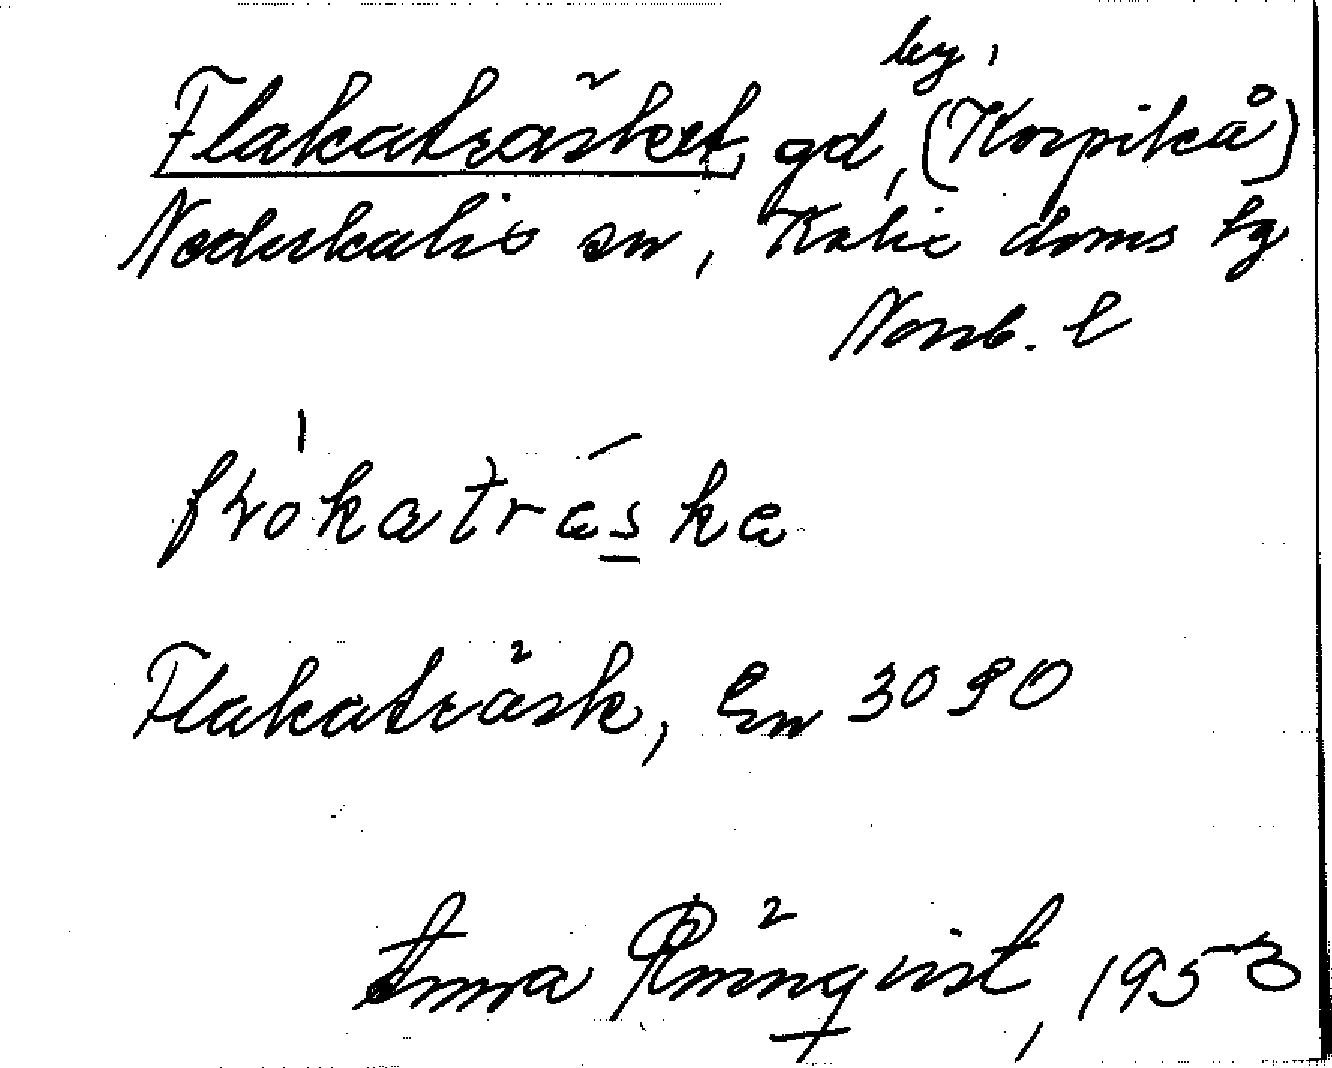 by,
Flakaträsket, gd, (Korpikå)
Nederkalix sn, Kalix doms tg
Norrb. l
Flakaträsk, En 3090
Anna Rönqvist, 1953